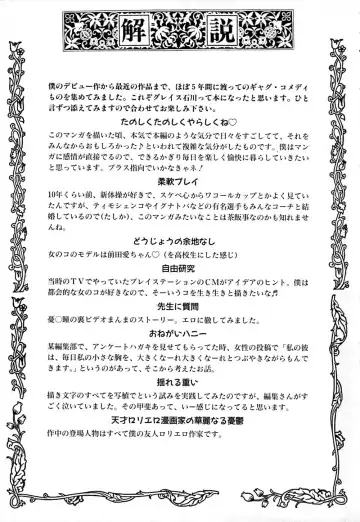 解説
僕のデビュー作から最近の作品まで、ほぼ5年間に渡ってのギャグ・コメディ
ものを集めてみました。これぞグレイス石川って本になったと思います。ひと
言ずつ添えてみますので合わせてお楽しみ下さい。
たのしくたのしくやらしくね♡
このマンガを描いた頃、本気で本編のような気分で日々をすごしてて、それを
みんなからおもしろかったよといわれて複雑な気分がしたものです。僕はマン
ガに感情が直接でるので、できるかぎり毎日を楽しく愉快に暮らしていきたい
と思っています。プラス指向でいかなきゃネ!
柔軟プレイ
10年くらい前、新体操が好きで、スケベ心からワコールカップとかよく見てい
たんですが、ティモシェンコやイグナトバなどの有名選手もみんなコーチと結
婚しているので(たしか)、このマンガみたいなことは茶飯事なのかも知れませ
んね。
どうじょうの余地なし
女のコのモデルは前田愛ちゃん♡(を高校生にした感じ)
自由研究
当時のTVでやっていたプレイステーションのCMがアイデアのヒント、僕は
都会的な女のコが好きなので、そーいうコを生き生きと描きたいな♬
先生に質問
憂〇瞳の裏ビデオまんまのストーリー。エロに徹してみました。
おねがいハニー
某編集部で、アンケートハガキを見せてもらってた時、女性の投稿で「私の彼
は、毎日私の小さな胸を、大きくなーれ大きくなーれとつぶやきながらもんで
きます。」というのがあって、そこから考えたお話。
揺れる重い
描き文字のすべてを写植でという試みを実践してみたのですが、編集さんがす
ごく泣いていました。その甲斐あって、いー感じになってると思います。
天才ロリエロ漫画家の華麗なる憂鬱
作中の登場人物はすべて僕の友人ロリエロ作家です。